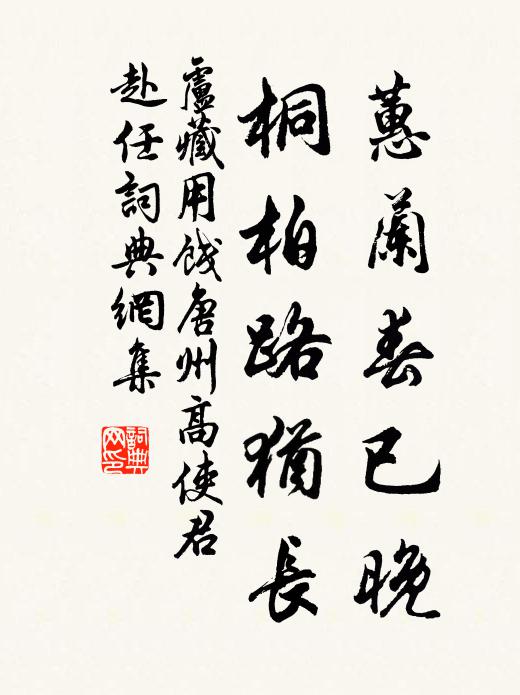 蕙蘭春已晚
桐柏路猶長
盧藏用餞唐州高使君
赴任詞典網集
詞典
网印